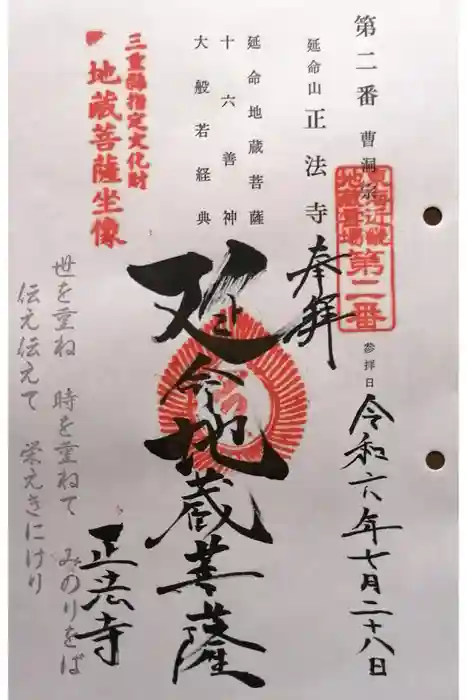 第二番 曹洞宗
延命山 正法寺
延命地蔵菩薩
十六善神
大般若経典
三重縣指定文化財
地蔵菩薩坐像
東海近畿
地蔵霊場
第二番
奉拝
参拝日
令和六年七月二十八日
延命地蔵菩薩
正法寺
世を重ね 時を重ねて みのりをば
伝え伝えて 栄えきにけり